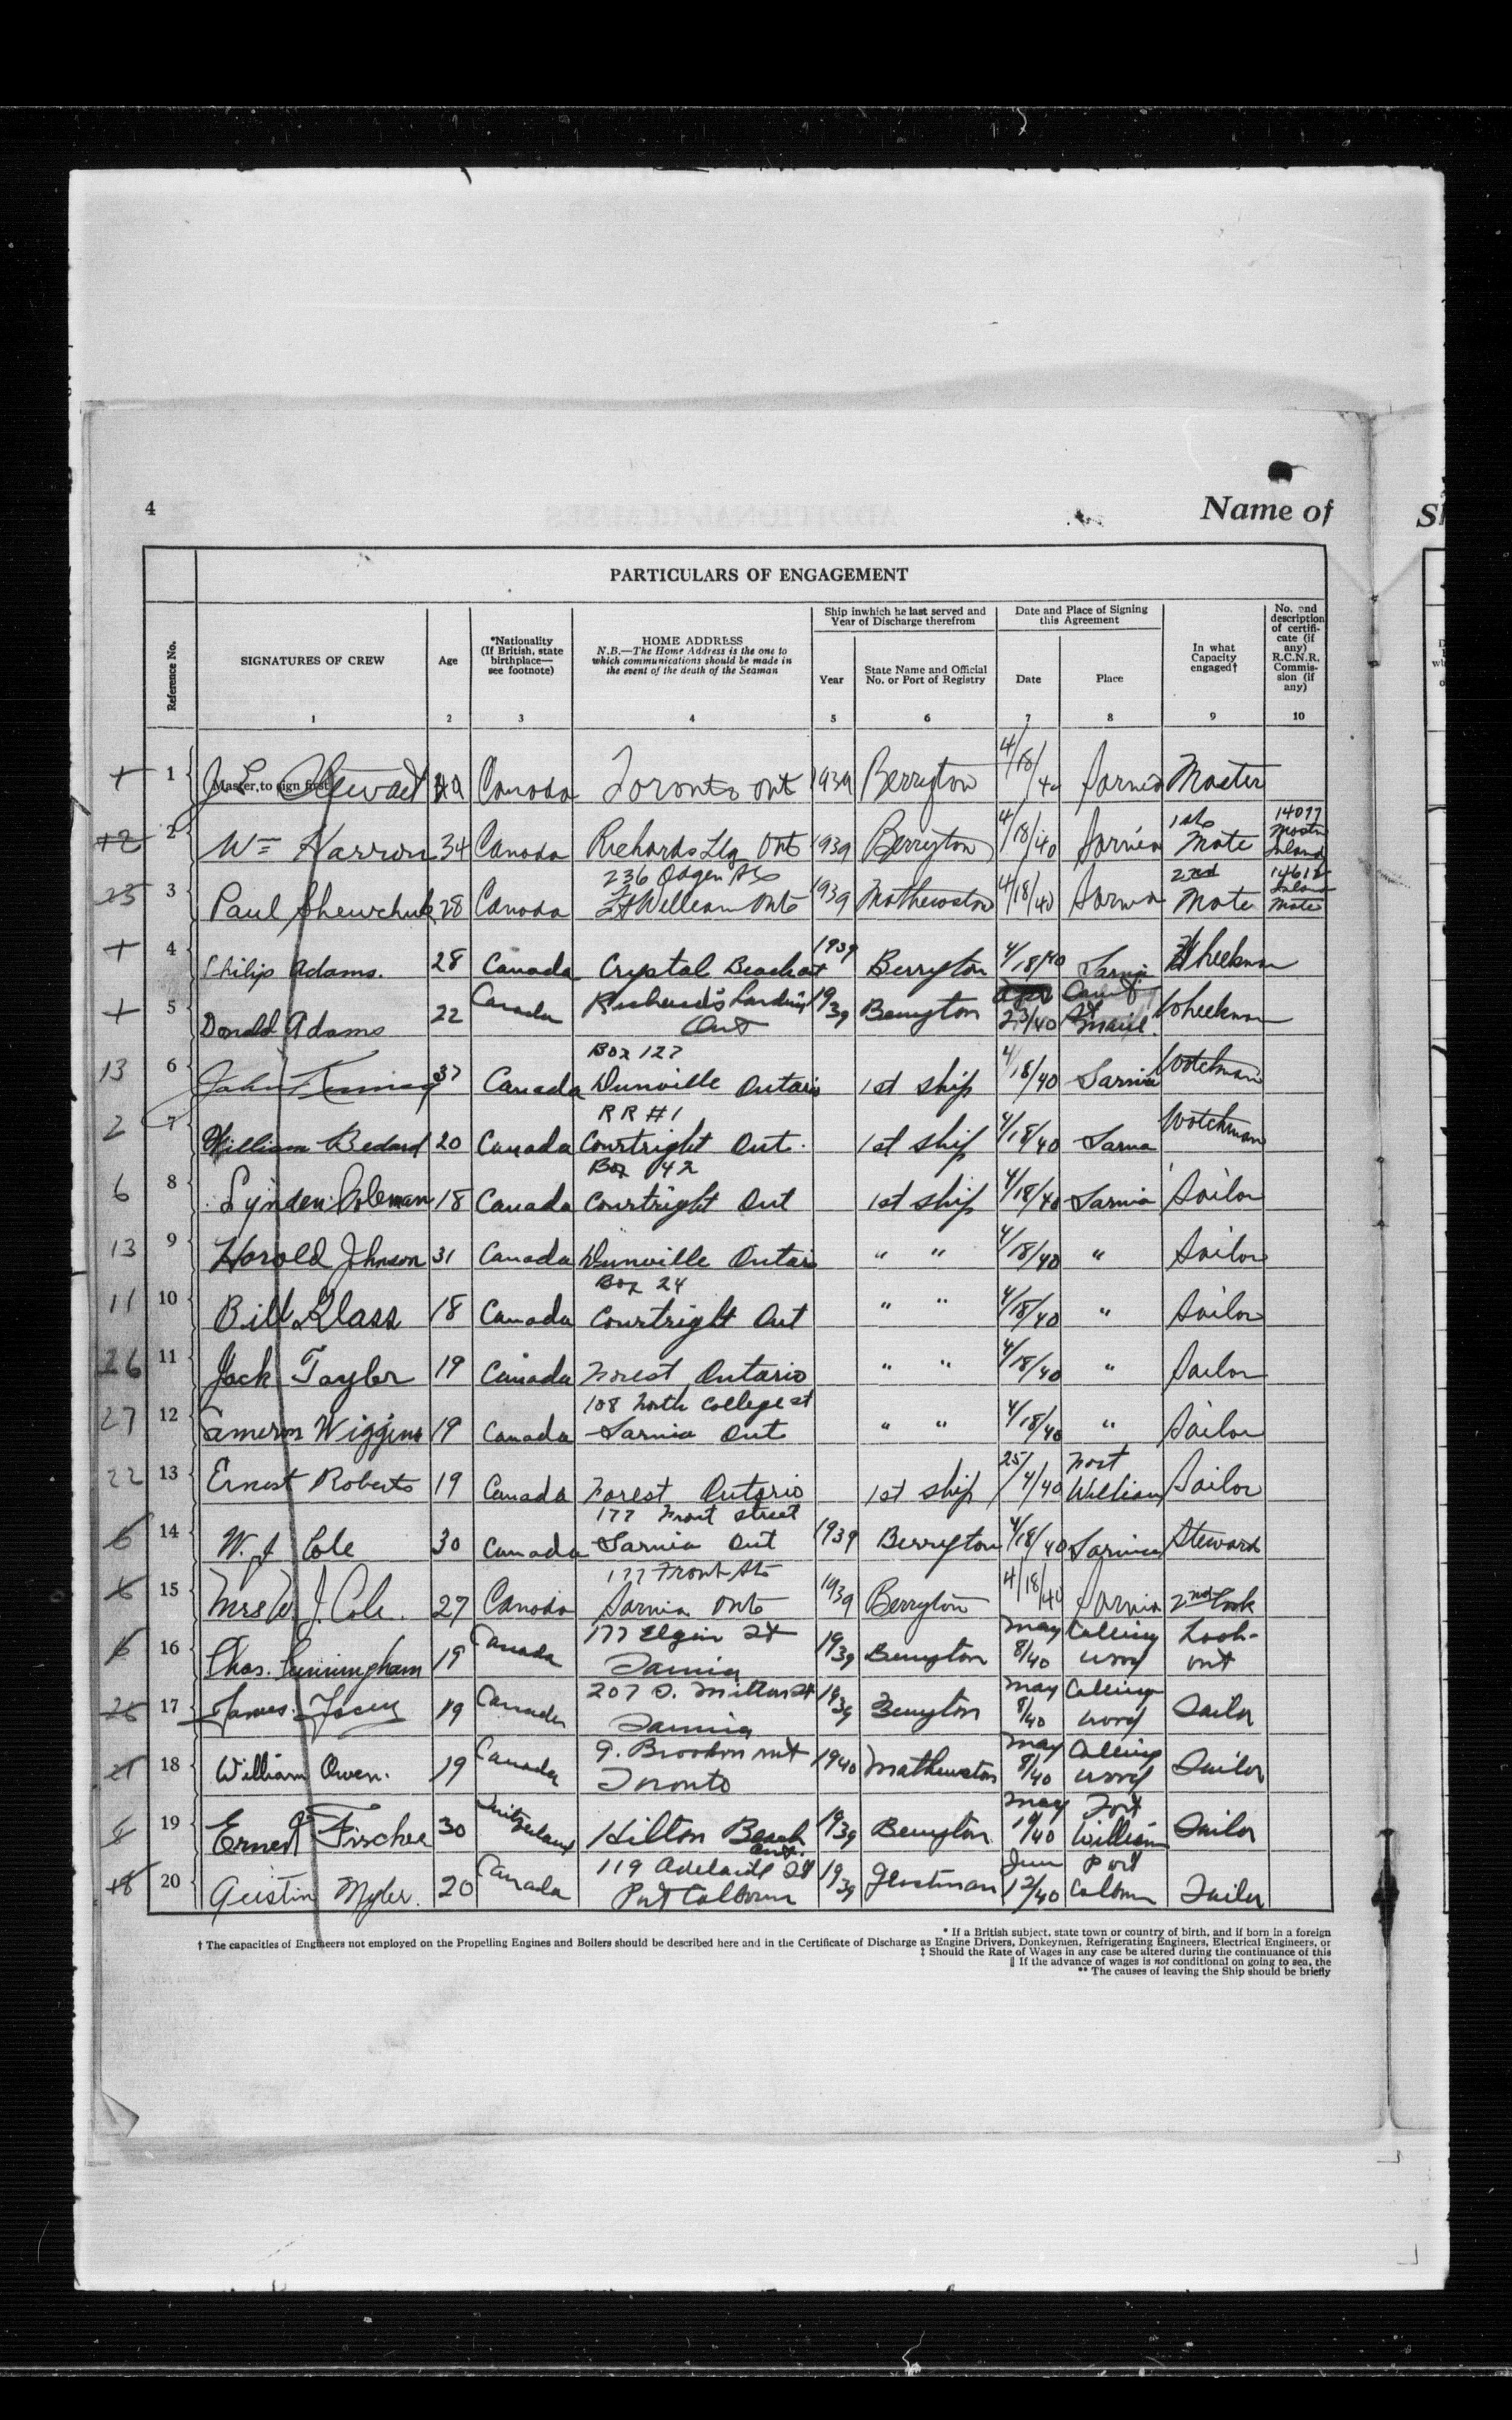 4
Name of
PARTICULARS OF ENGAGEMENT
Reference No.
SIGNATURES OF CREW
1
Age
2
*Nationality
(If British, state
birthplace—
see footnote)
3
HOME ADDRESS
N.B.—The Home Address is the one to
which communications should be made in
the event of the death of the Seaman
4
Ship inwhich he last served and
Year of Discharge therefrom
Year
5
State Name and Official
No. or Port of Registry
6
Date and Place of Signing
this Agreement
Date
7
Place
8
In what
Capacity
engaged†
9
No. and
description
of certifi-
cate (if
any)
R.C.N.R.
Commis-
sion (if
any)
10
1 Master, to sign first J L Stewart Canada Toronto Ont 1939 Berryton 4/18/40 Sarnia Master
+2 2 Wm Harron 34 Canada Richards Ldg Ont 1939 Berryton 4/18/40 Sarnia 1st Mate 14077 Master Inland
23 3 Paul Shewchuk 28 Canada 236 Ogden St Ft William Ont 1939 Mathewston 4/18/40 Sarnia 2nd Mate Inland Mate
4 Philip Adams. 28 Canada Crystal Beach Ont 1939 Berryton 4/18/40 Sarnia Wheelsman
5 Donald Adams 22 Canada Richard's Landing Ont 1939 Berryton 23/40 Sault St Marie Wheelsman
13 6 John 37 Canada Box 127 Dunville Ontario 1st ship 4/18/40 Sarnia Watchman
2 7 William Bedard 20 Canada RR #1 Courtright Ont. 1st ship 4/18/40 Sarnia Watchman
6 8 Lynden Coleman 18 Canada Box 42 Courtright Ont 1st ship 4/18/40 Sarnia Sailor
13 9 Harold Johnson 31 Canada Dunville Ontario " " 4/18/40 " Sailor
11 10 Bill Glass 18 Canada Box 24 Courtright Ont " " 4/18/40 " Sailor
26 11 Jack Tayler 19 Canada Forest Ontario " " 4/18/40 " Sailor
27 12 Cameron Wiggins 19 Canada 108 North College st Sarnia Ont " " 4/18/40 " Sailor
22 13 Ernest Roberts 19 Canada Forest Ontario 1st ship 25/4/40 Fort William Sailor
6 14 W. J Cole 30 Canada 177 Front Street Sarnia Ont 1939 Berryton 4/18/40 Sarnia Steward
6 15 Mrs W J. Cole. 27 Canada 177 Front St Sarnia Ont 1939 Berryton 4/18/40 Sarnia 2nd Cook
6 16 Chas. Cunningham 19 Canada 177 Elgin St Sarnia 1939 Berryton May 8/40 Collingwood Look-out
17 James 19 Canada 207 S. Milton St Sarnia 1939 Berryton May 8/40 Collingwood Sailor
21 18 William Owen. 19 Canada 9. Toronto 1940 Mathewston May 8/40 Collingwood Sailor
19 Ernest Fischer 30 Switzerland Hilton Beach Ont. 1939 Berryton May 19/40 Fort William Sailor
18 20 Austin Myler. 20 Canada 119 Adelaide St Port Colborne 1939 Jun 12/40 Port Colborne Sailor
* If a British subject, state town or country of birth, and if born in a foreign
† The capacities of Engineers not employed on the Propelling Engines and Boilers should be described here and in the Certificate of Discharge as Engine Drivers, Donkeymen, Refrigerating Engineers, Electrical Engineers, or
‡ Should the Rate of Wages in any case be altered during the continuance of this
|| If the advance of wages is not conditional on going to sea, the
** The causes of leaving the Ship should be briefly